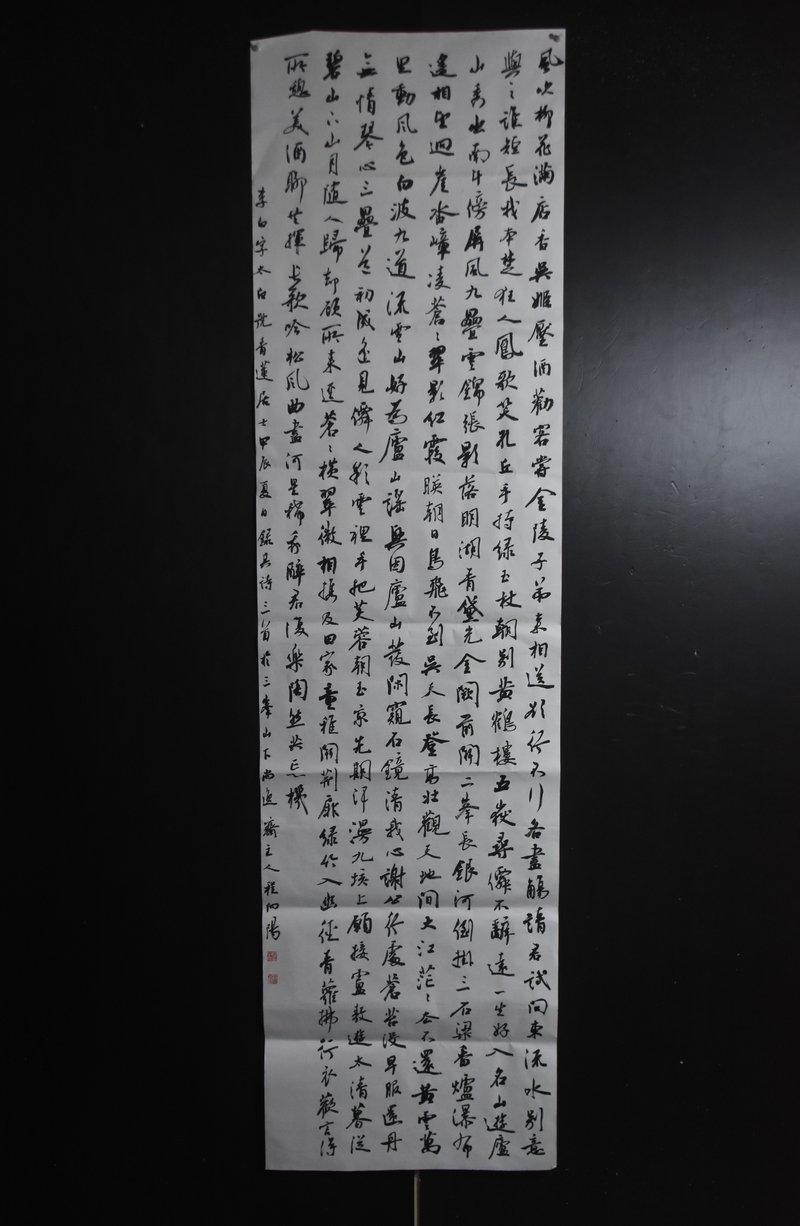 風吹柳花滿店香吳姬壓酒勸客嘗金陵子弟來相送欲行不行各盡觴請君試問東流水別意
與之誰短長我本楚狂人鳳歌笑孔丘手持綠玉杖朝別黃鶴樓五嶽尋僊不辭遠一生好入名山遊廬
山秀出南斗傍屏風九疊雲錦張影落明湖青黛光金闕前開二峯長銀河倒掛三石梁香爐瀑布
遙相望迴崖沓嶂凌蒼〻翠影紅霞映朝日鳥飛不到吳天長登高壯觀天地間大江茫〻去不還黃雲萬
里動風色白波九道流雪山好為廬山謠興因廬山發閑窺石鏡清我心謝公行處蒼苔沒早服還丹
無情琴心三疊道初成遙見僊人彩雲裡手把芙蓉朝玉京先期汗漫九垓上願接盧敖遊太清暮從
碧山下山月隨人歸卻顧所來逕蒼〻橫翠微相攜及田家童稚開荊扉綠竹入幽徑青蘿拂行衣歡言得
所憩美酒聊共揮長歌吟松風曲盡河星稀我醉君復樂陶然共忘機
李白字太白號青蓮居士甲辰夏日錄其詩三首於三峯山下尚逸齋主人程向陽